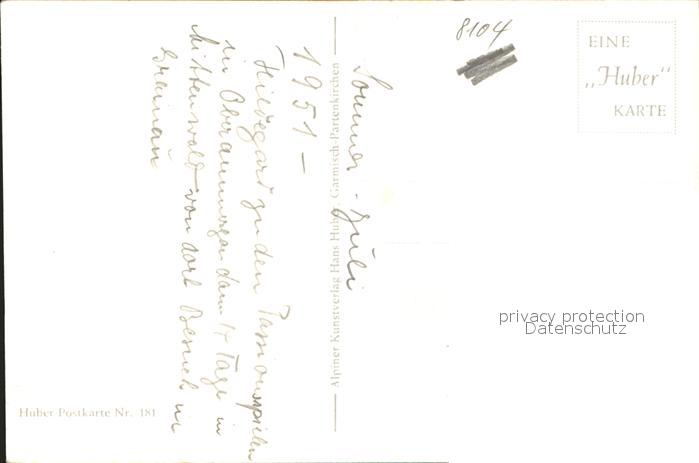 8104
EINE
„Huber"
KARTE
Sommer - Juli
1951 -
Hildegard zu den Passionsspielen
in Oberammergau dann 14 Tage in
Mittenwald von dort Besuch in
Grainau
Alpiner Kunstverlag Hans Huber, Garmisch-Partenkirchen
Huber-Postkarte Nr. 181
privacy protection
Datenschutz